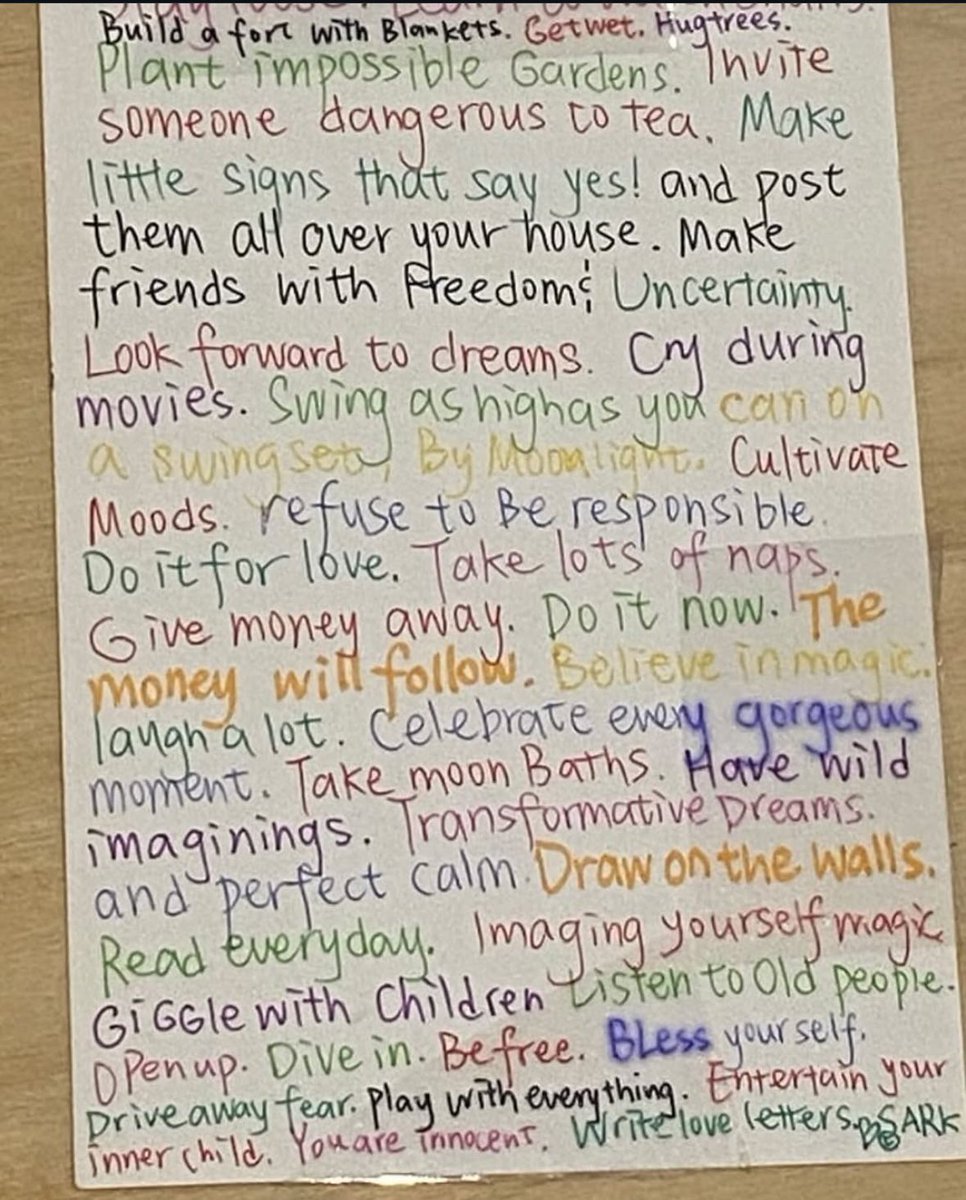 Build a fort with Blankets. Get wet. Hug trees.
Plant impossible Gardens. Invite
someone dangerous to tea. Make
little signs that say yes! and post
them all over your house. Make
friends with Freedom & Uncertainty.
Look forward to dreams. Cry during
movies. Swing as high as you can on
a swingset, By Moonlight. Cultivate
Moods. refuse to Be responsible.
Do it for love. Take lots of naps.
Give money away. Do it now. The
money will follow. Believe in magic.
laugh a lot. Celebrate every gorgeous
moment. Take moon Baths. Have wild
imaginings. Transformative Dreams.
and perfect calm. Draw on the walls.
Read everyday. Imaging yourself magic
Giggle with Children Listen to Old people.
Open up. Dive in. Be free. Bless yourself.
Drive away fear. Play with everything. Entertain your
inner child. You are innocent. Write love letters. SARK